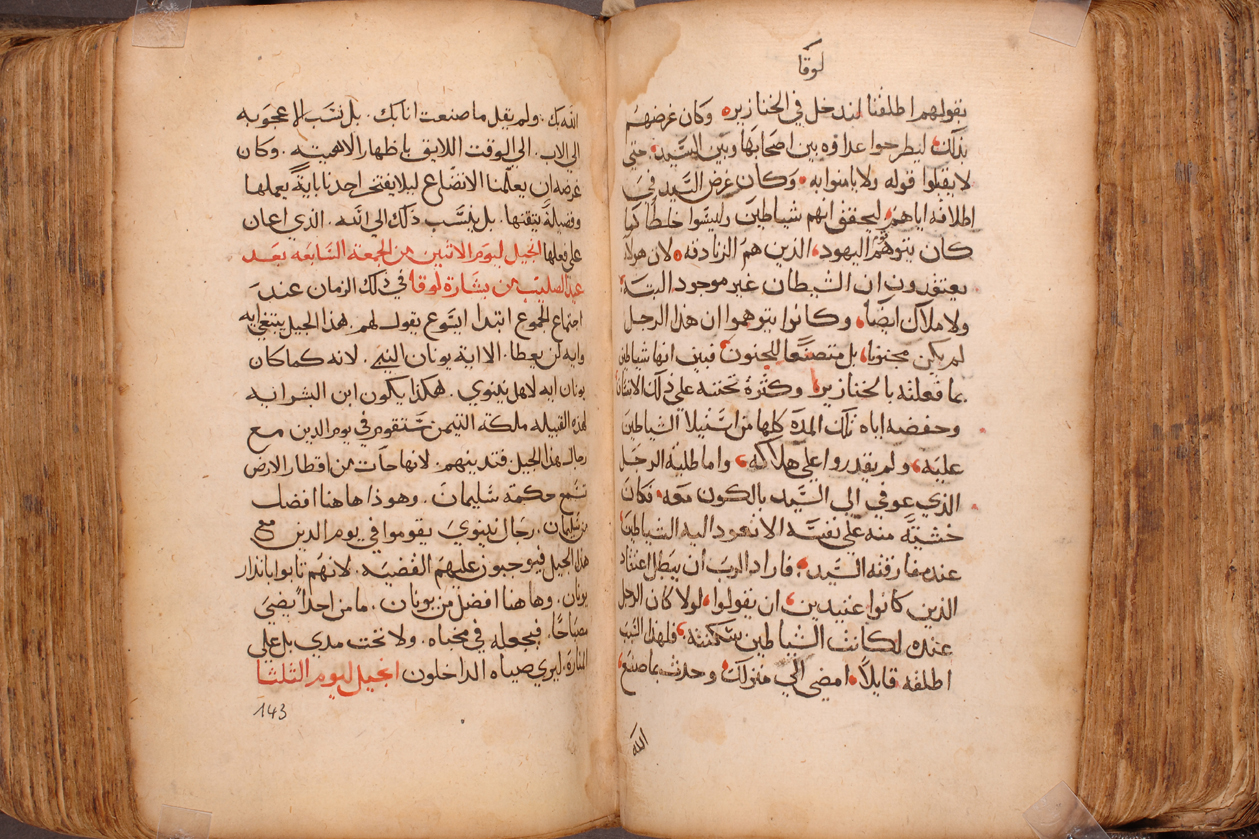 لوقا
بقولهم اطلقنا لندخل في الخنازير وكان غرضهم
بذلك ليطرحوا عداوه بين اصحابها وبين السيد حتى
لا يقبلوا قوله ولا يامنوا به وكان غرض السيد في
اطلاقه اياهم ليحقق انهم شياطين وليسوا خلطا كما
كان يتوهم اليهود الذين هم الزنادقه لان هولا
يعتقدون ان الشيطان غير موجود البته
ولا ملاك ايضا وكانوا يتوهموا ان هذا الرجل
لم يكن مجنونا بل متصنعا للجنون فبين انها شياطين
بما فعلته بالخنازير وكثرة تحننه على ذلك الانسان
وحفضه اياه تلك المدة كلها من استيلا الشياطين
عليه ولم يقدروا على هلاكه واما طلبة الرجل
الذي عوفي الى السيد بالكون معه فكان
خشيةً منه على نفسه الا تعود اليه الشياطين
عند مفارقته السيد فاراد الرب ان يبطل اعتقاد
الذين كانوا عتيدين ان يقولوا لولا كان الرجل
عنده لكانت الشياطين ستمكنته فلهذا السبب
اطلقه قايلاً امضي الى منزلك وحدث بما صنع
الله
الله بك ولم يقل ما صنعت انا بك بل نسب الاعجوبه
الى الاب الى الوقت اللايق باظهار الاهيته وكان
غرضه ان يعلمنا الاتضاع ليلا يفتخر احدنا باية يعملها
وفضيلة يتقنها بل ينسب ذلك الى الله الذي اعان
على فعلها انجيل ليوم الاثنين من الجمعة السابعه بعد
عيد الصليب من بشارة لوقا في ذلك الزمان عند
اجتماع الجموع ابتدا ايسوع يقول لهم هذا الجيل يبتغي ايه
وايه لن يعطا الا اية يونان النبي لانه كما كان
يونان ايه لاهل نينوي هكذا يكون ابن البشر ايه
لهذه القبيله ملكة التيمن ستقوم في يوم الدين مع
رجال هذا الجيل فتدينهم لانها جآت من اقطار الارض
تسمع حكمة سليمان وهوذا هاهنا افضل
من سليمان رجال نينوي يقوموا في يوم الدين مع
هذا الجيل فيوجبون عليهم القضيه لانهم تابوا بانذار
يونان وهاهنا افضل من يونان ما من احداً يضي
مصباحًا فيجعله في مخباه ولا تحت مدي بل على
المنارة ليري ضياه الداخلون انجيل ليوم الثلثا
143